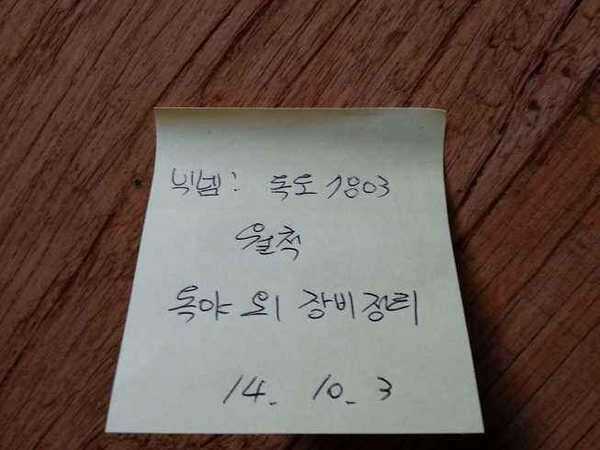 닉넴: 독도1803
월척
독야 외 장비정리
14. 10. 3